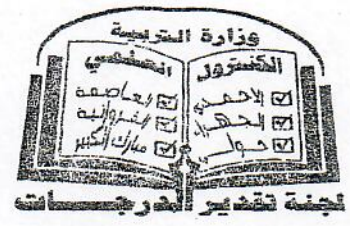 وزارة التربية
الكنترول العلمي
الأحمدي
الجهراء
حولي
العاصمة
الفروانية
مبارك الكبير
لجنة تقدير الدرجات